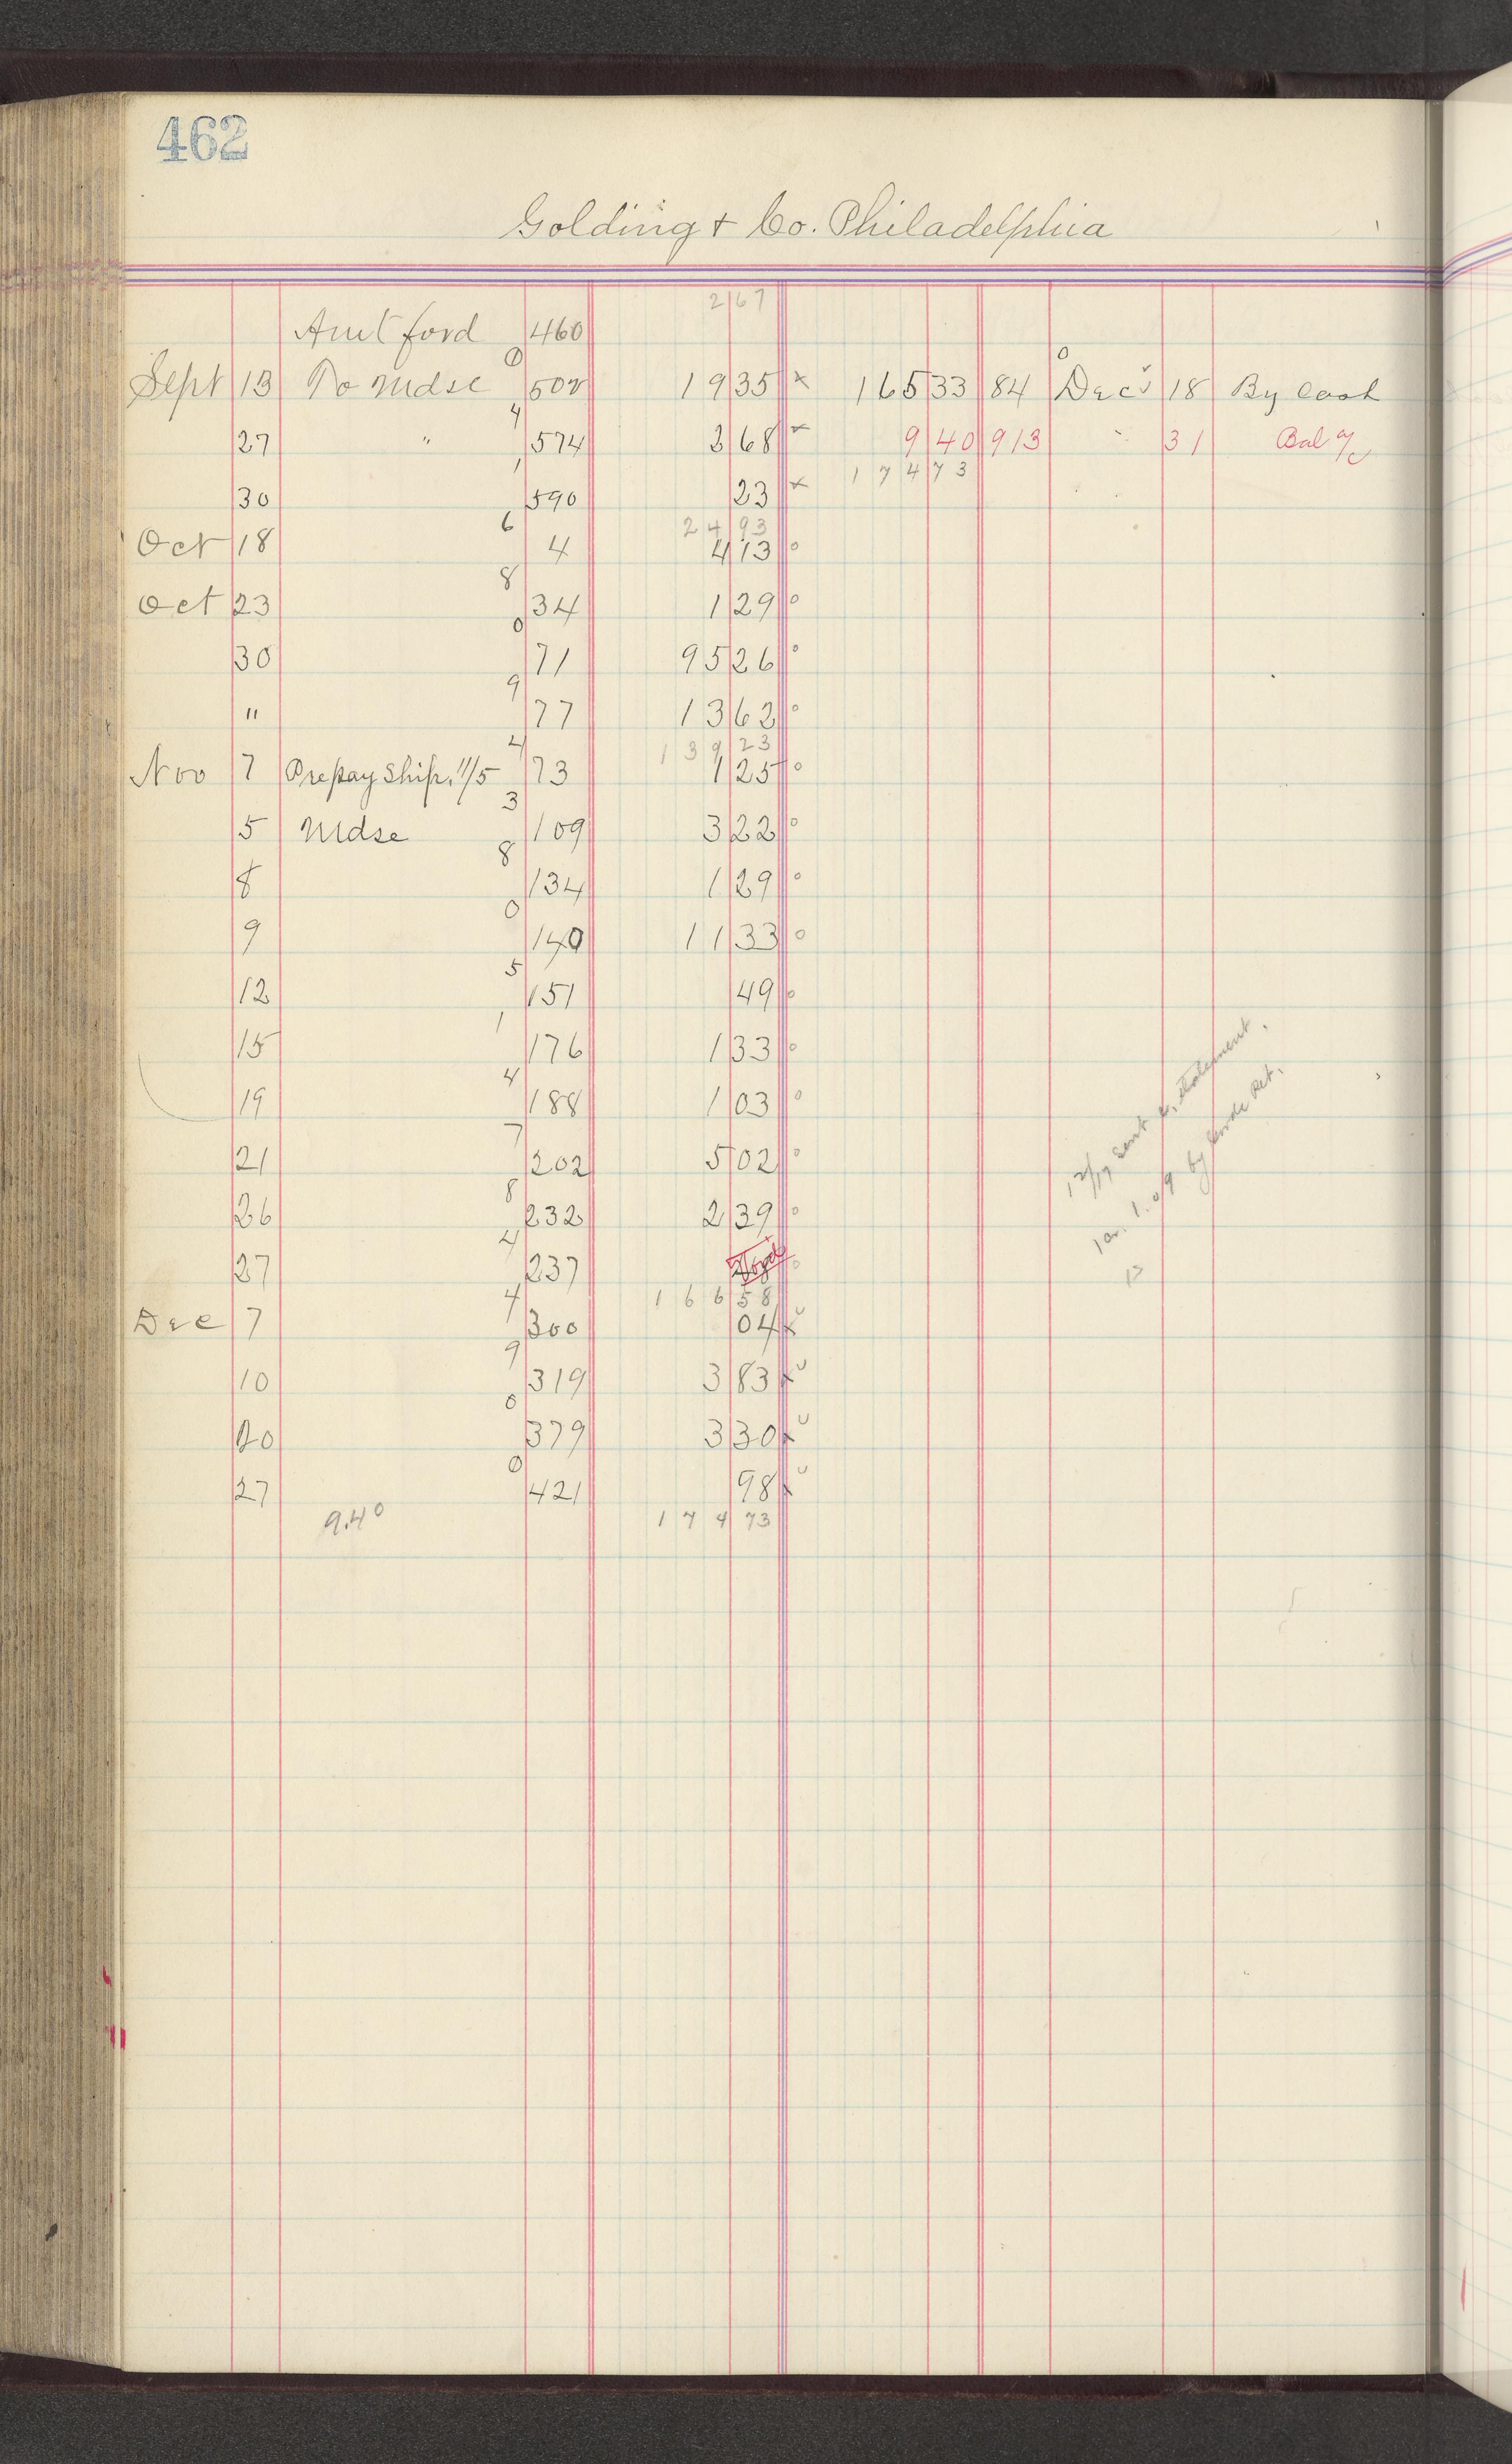 462
Golding & Co. Philadelphia
2 67
Amt ford 460
0 0
Sept 13 To Mdse 502 19 35 x 165 33 84 Dec 18 By Cash
4
27 " 574 3 68 x 9 40 913 " 31 Bal a/c
1 174 73
30 590 23 x
6 24 93
Oct 18 4 4 13 o
8
Oct 23 34 1 29 o
0
30 71 95 26 o
9
" 77 13 62 o
4 139 23
Nov 7 Prepay Ship. 11/5 73 1 25 o
3
5 Mdse 109 3 22 o
8
8 134 1 29 o
0
9 140 11 33 o
5
12 151 49 o
1
15 176 1 33 o
4
19 188 1 03 o
7
21 202 5 02 o
8
26 232 2 39 o
4
27 237 Void o
4 166 58
Dec 7 300 04 x
9
10 319 3 83 x
0
20 379 3 30 x
0
27 421 98 x
9.40 174 73
12/17 Sent statement.
1.09 by